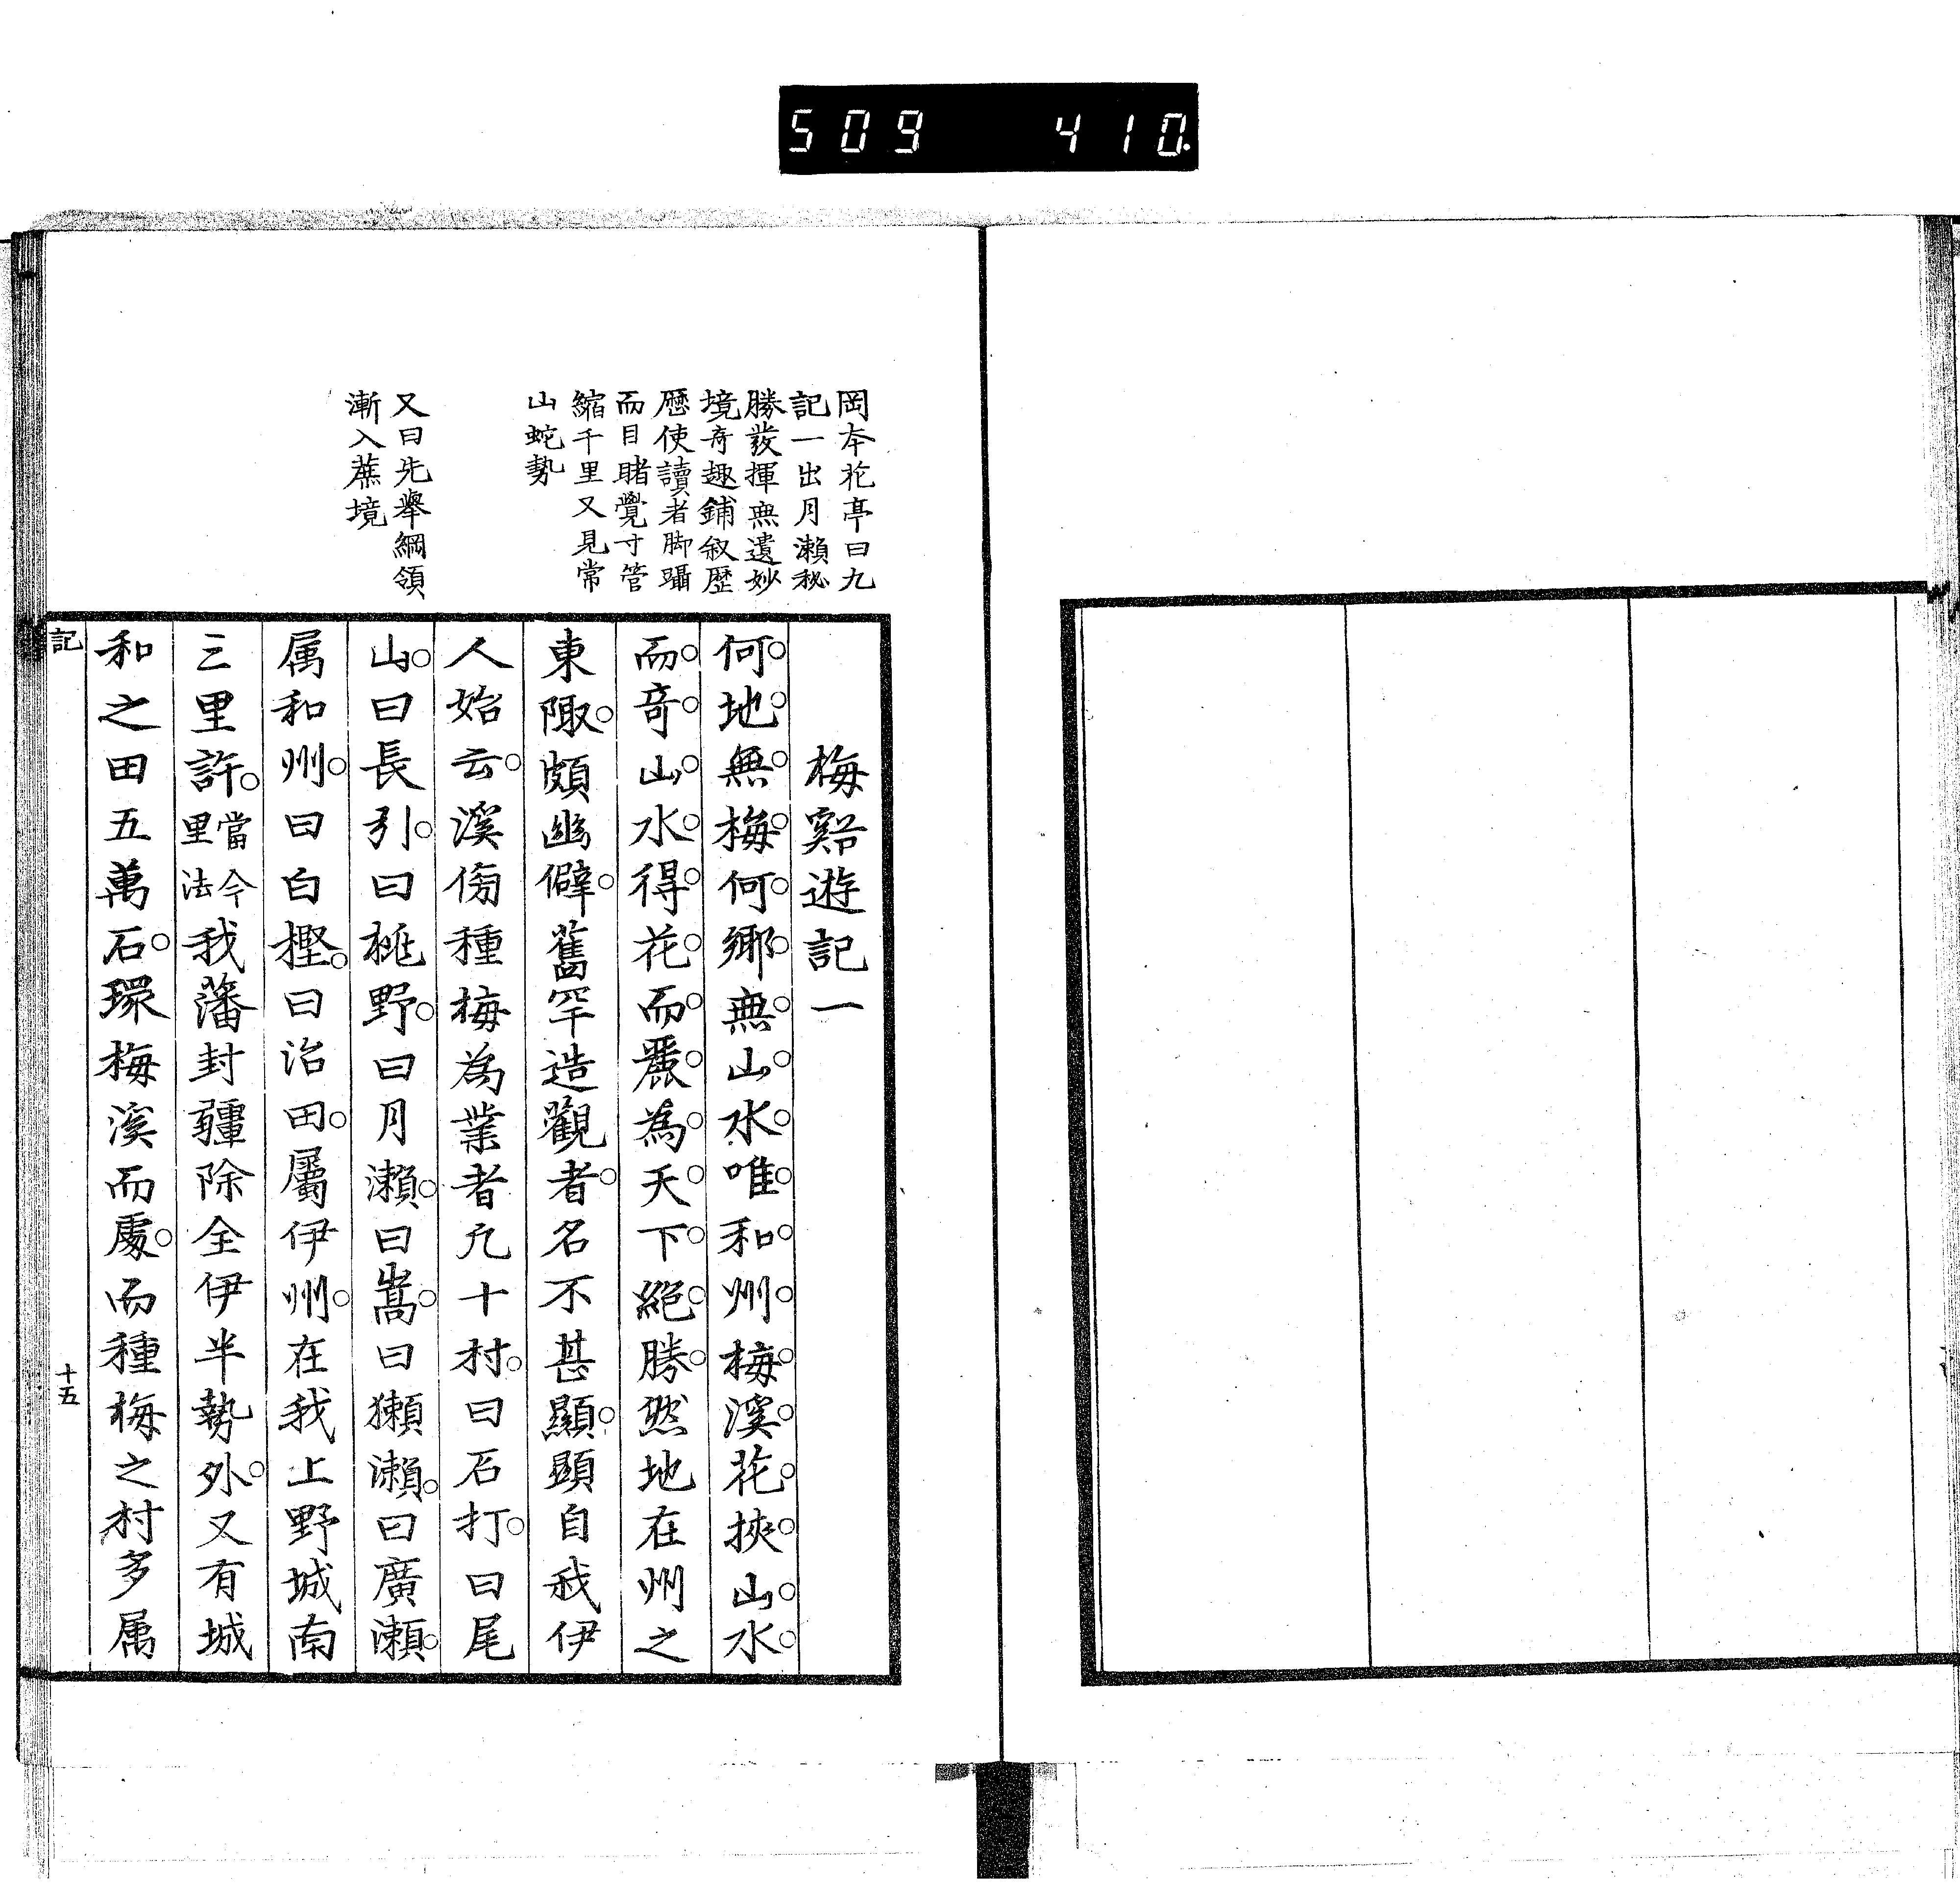 509 410
岡本花亭曰九
記一出月瀨秘
勝發揮無遺妙
境奇趣鋪叙歴
歴使讀者脚躡
而目睹覺寸管
縮千里又見常
山蛇勢
又曰先舉綱領
漸入蔗境
梅谿遊記一
何地無梅何鄉無山水唯和州梅溪花挾山水
而奇山水得花而麗為天下絕勝然地在州之
東陬頗幽僻舊罕造觀者名不甚顯顯自我伊
人始云溪傍種梅為業者凡十村曰石打曰尾
山曰長引曰桃野曰月瀨曰嵩曰獺瀨曰廣瀨
属和州曰白樫曰治田屬伊州在我上野城南
三里許當今里法我藩封疆除全伊半勢外又有城
和之田五萬石環梅溪而處而種梅之村多属
記
十五